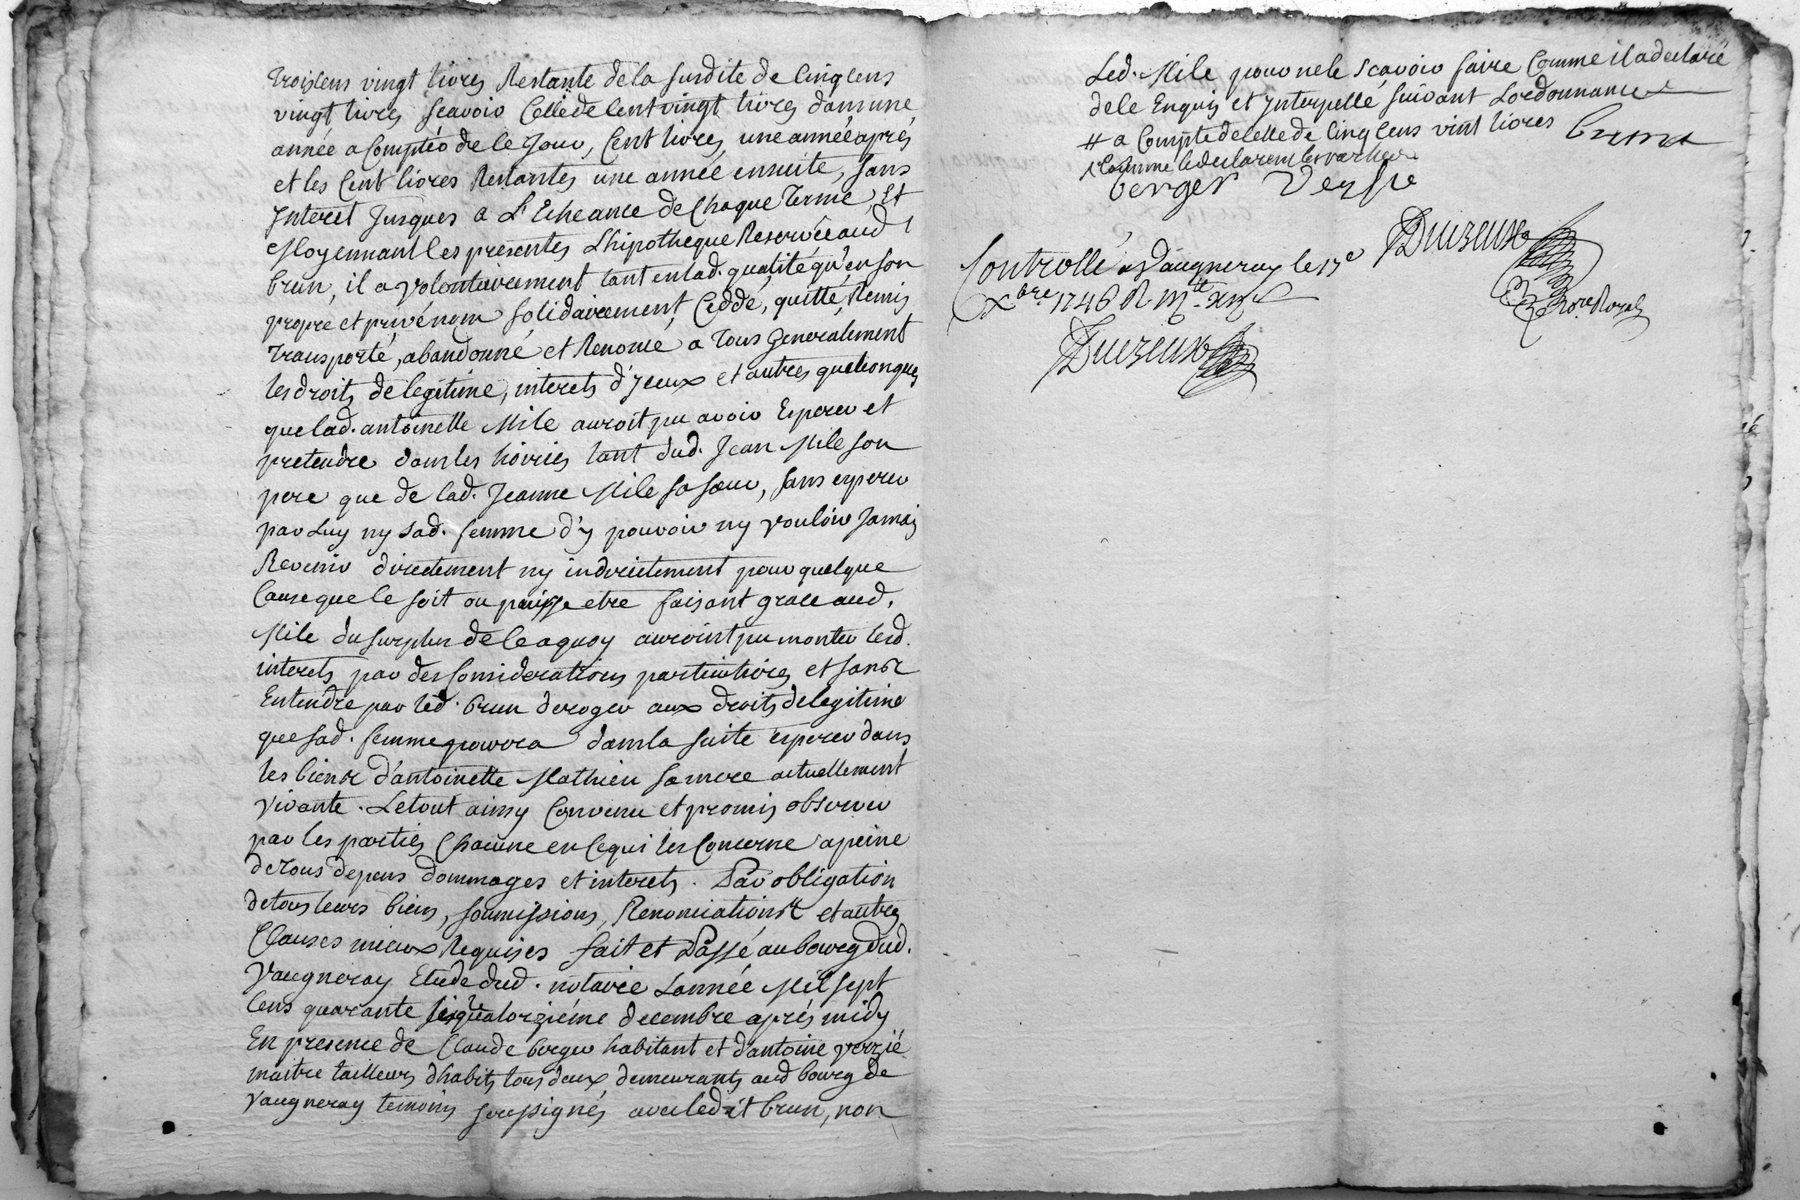 Troiscens vingt livres Restante de la susdite de Cinq cens
vingt livres scavoir Celle de Cent vingt livres dans une
année a Compter de ce Jour, Cent livres une année après
et les Cent livres Restantes une année ensuite, sans
Interet Jusques a L'Echeance de Chaque Terme, Et
Moyennant les presentes L'hipotheque Reservée aud
brun, il a volontairement tant en lad. qualité qu'en son
propre et privé nom solidairement Ceddé, quitté, Remis
Transporté, abandonné et Renoncé a Tous Generalement
les droits de legitime, interets d'yceux et autres quelconques
que lad. antoinette Mile auroit pu avoir Esperer et
pretendre dans les hoiries tant dud. Jean Mile son
pere que de lad. Jeanne Mile sa sœur, sans esperer
par Luy ny sad. femme d'y pouvoir ny vouloir Jamais
Revenir directement ny indirectement pour quelque
Cause que ce soit ou puisse etre faisant grace aud.
Mile du surplus de ce a quoy auroint pu monter lesd.
interets par des Considerations particulieres et sans
Entendre par led. brun deroger aux droits de legitime
que sad. femme pourra dans la suite esperer dans
les biens d'antoinette Mathieu sa mere actuellement
vivante. Le tout ainsy Convenu et promis observer
par les parties Chacune en ce qui les Concerne a peine
de Tous depens dommages et interets. Par obligation
de tous leurs biens, soumissions, Renonciations et autres
Clauses mieux Requises fait et Passé au bourg dud.
Vaugneray Etude dud. notaire L'année Mil sept
Cens quarante six le quatorzième decembre après midy
En presence de Claude berger habitant et d'antoine verzié
maitre tailleurs d'habits tous deux demeurants aud bourg de
Vaugneray temoins soussignés avec ledit brun, non
Led. Mile pour ne le scavoir faire Comme il a declaré
de ce Enquis et Interpellé suivant Lordonnance
# a Compte de celle de Cinq Cens vint livres brun
Comme le declarent les parties
berger Verzie
Controllé a Vaugneray le 17e
Xbre 1746 R
Duizeux
Duizeux
No.re Royal